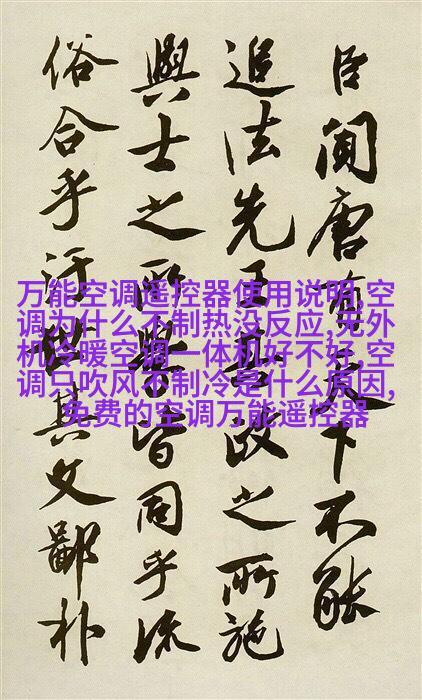 臣聞唐有天下不能
追法先王善政之所施
與士之所學皆同乎流
俗合乎汙世其文鄙朴
万能空调遥控器使用说明,空
调为什么不制热没反应,无外
机冷暖空调一体机好不好,空
调只吹风不制冷是什么原因,
免费的空调万能遥控器